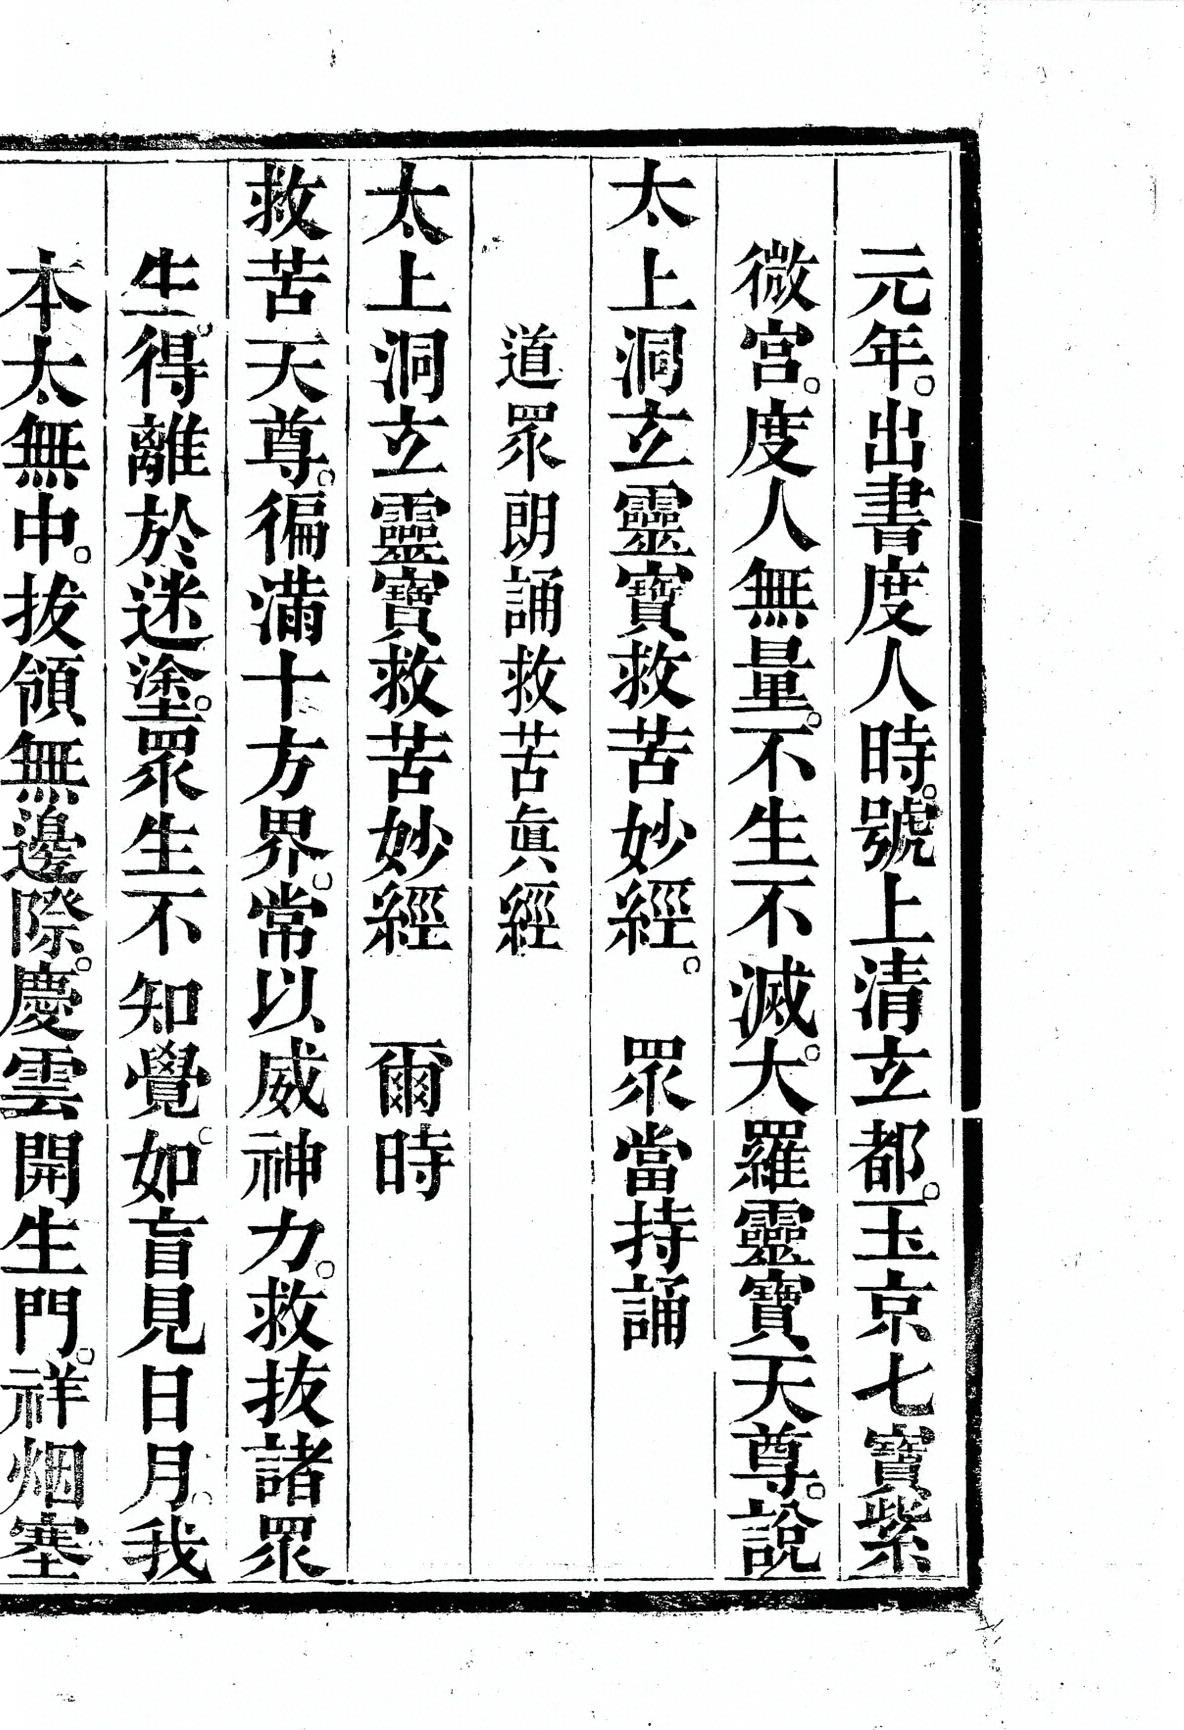 元年。出書度人時。號上清玄都。玉京七寶紫
微宮。度人無量。不生不滅。大羅靈寶天尊。說
太上洞玄靈寶救苦妙經。　眾當持誦
道眾朗誦救苦眞經
太上洞玄靈寶救苦妙經　爾時
救苦天尊。徧滿十方界。常以威神力。救拔諸眾
生。得離於迷塗。眾生不知覺。如盲見日月。我
本太無中。拔領無邊際。慶雲開生門。祥烟塞